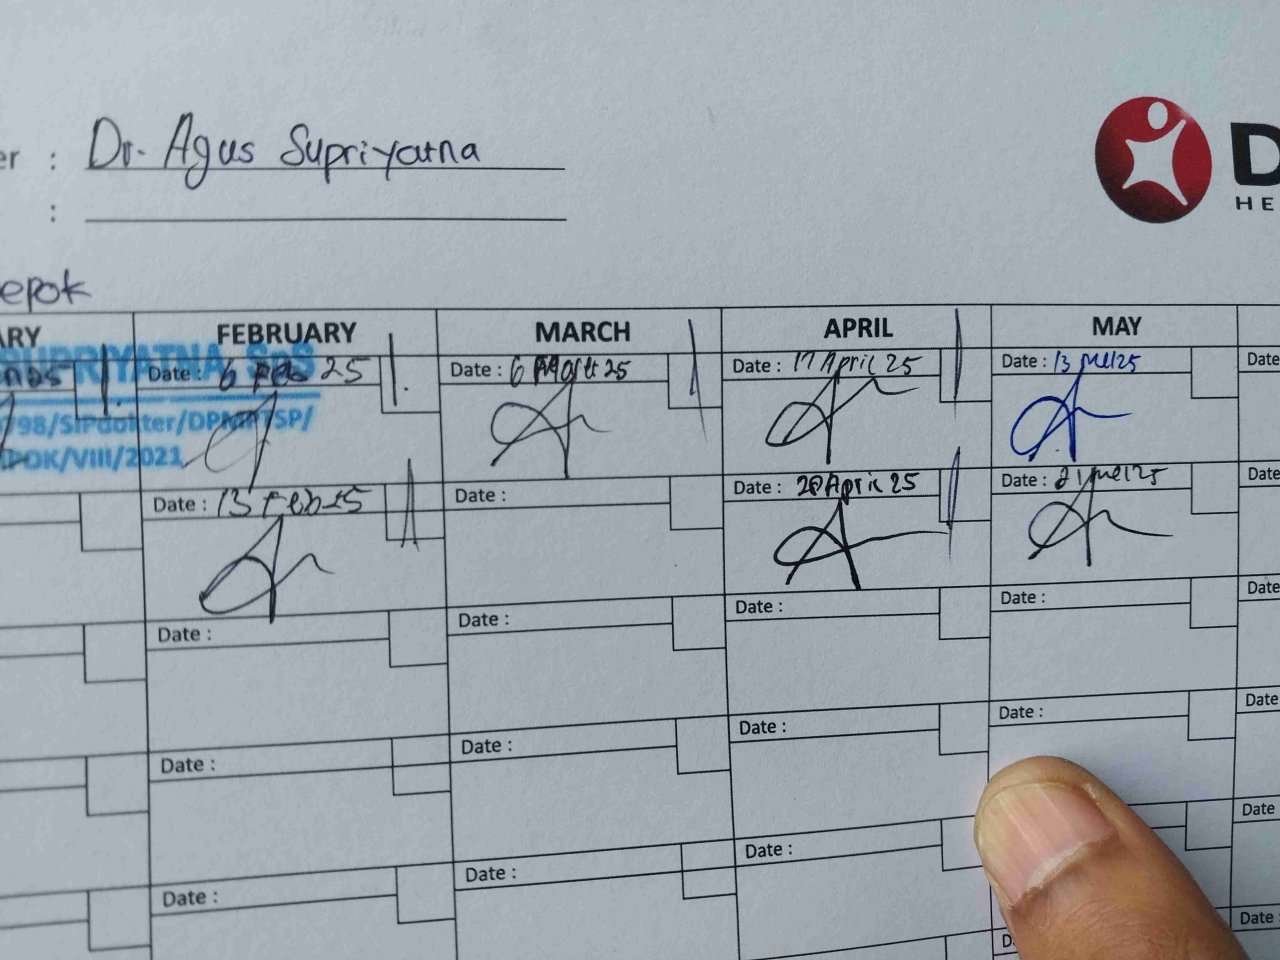 er : Dr. Agus Supriyatna
:
D
HE
epok
ARY FEBRUARY MARCH APRIL MAY
SUPRIYATNA SpS
Date : 6 Feb 25 Date : 6 Maret 25 Date : 17 April 25 Date : 13 Mei 25 Date
/98/SIPdokter/DPMPTSP/
POK/VIII/2021
Date : 13 Feb 25 Date : Date : 28 April 25 Date : 21 Mei 25 Date
Date : Date : Date : Date : Date
Date : Date : Date : Date : Date
Date : Date : Date : Date :
D Date :